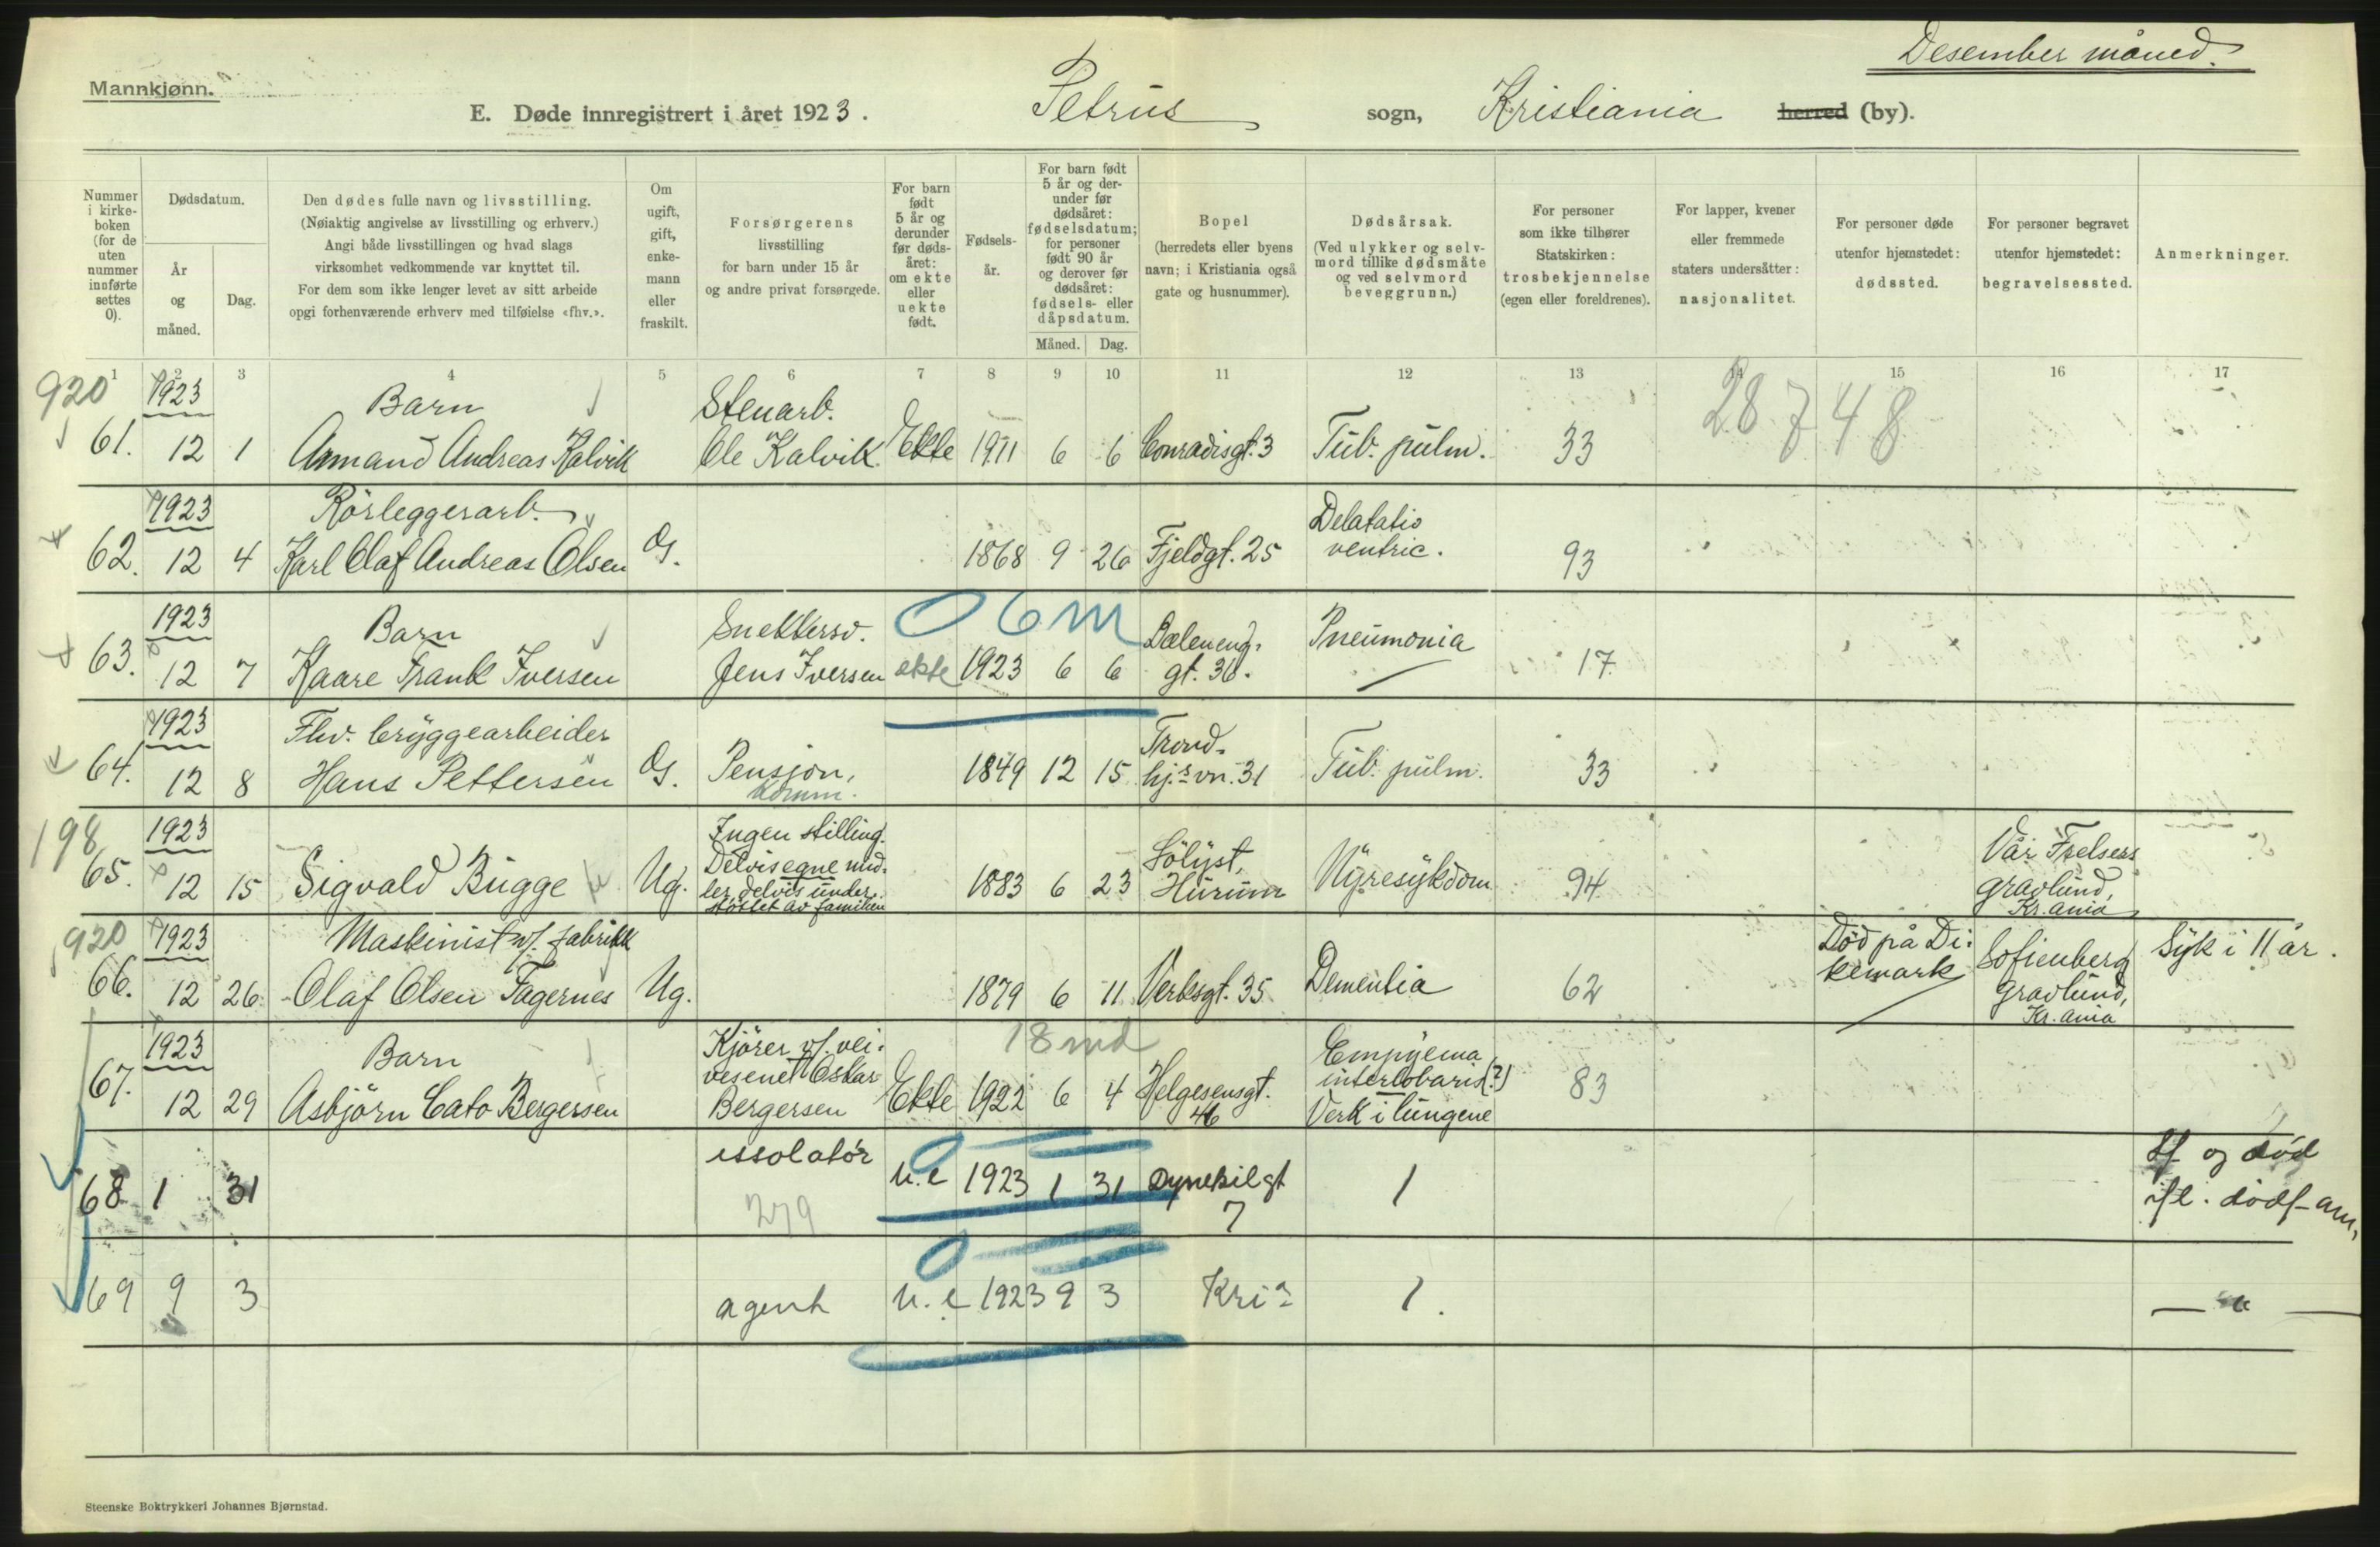 Desember måned.
Mannkjønn.
E. Døde innregistrert i året 1923.
Petrus sogn, Kristiania herred (by).
Nummer i kirkeboken (for de uten nummer innførte settes 0).
Dødsdatum.
År og måned.
Dag.
Den dødes fulle navn og livsstilling.
(Nøiaktig angivelse av livsstilling og erhverv.)
Angi både livsstillingen og hvad slags
virksomhet vedkommende var knyttet til.
For dem som ikke lenger levet av sitt arbeide
opgi forhenværende erhverv med tilføielse «fhv.».
Om ugift, gift, enkemann eller fraskilt.
Forsørgerens
livsstilling
for barn under 15 år
og andre privat forsørgede.
For barn født 5 år og derunder før dødsåret: om ekte eller uekte født.
Fødselsår.
For barn født 5 år og derunder før dødsåret: fødselsdatum; for personer født 90 år og derover før dødsåret: fødsels- eller dåpsdatum.
Måned. Dag.
Bopel
(herredets eller byens
navn; i Kristiania også
gate og husnummer).
Dødsårsak.
(Ved ulykker og selvmord tillike dødsmåte og ved selvmord beveggrunn.)
For personer
som ikke tilhører
Statskirken:
trosbekjennelse
(egen eller foreldrenes).
For lapper, kvener
eller fremmede
staters undersåtter:
nasjonalitet.
For personer døde
utenfor hjemstedet:
dødssted.
For personer begravet
utenfor hjemstedet:
begravelsessted.
Anmerkninger.
1 2 3 4 5 6 7 8 9 10 11 12 13 14 15 16 17
920 1923 Barn Stenarb. 28748
61. 12 1 Armand Andreas Kalvik Ole Kalvik Ekte 1911 6 6 Conradisgt. 3 Tub. pulm. 33
1923 Rörleggerarb. Delatatio
62. 12 4 Karl Olaf Andreas Olsen G. 1868 9 26 Fjeldgt. 25 ventric. 93
1923 Barn Snekkersv. 0 6 m Dæleneng-
63. 12 7 Kaare Frank Iversen Jens Iversen ekte 1923 6 6 gt. 36. Pneumonia 17
1923 Fhv. bryggearbeider Trond-
64. 12 8 Hans Pettersen G. Pensjon, 1849 12 15 hj.s vn. 31 Tub. pulm. 33
komm.
198 1923 Ingen stilling.
Delvis egne mid-
65. 12 15 Sigvald Bugge Ug. ler, delvis under- 1883 6 23 Sölyst, Hurum Nyresykdom 94 Vår Frelsers gravlund, Kr.ania
støttet av familien
920 1923 Maskinist v/ fabrikk
66. 12 26 Olaf Olsen Fagernes Ug. 1879 6 11 Verksgt. 35 Dementia 62 Död på Dikemark Sofienberg gravlund, Kr.ania Syk i 11 år.
1923 Barn Kjörer v/ vei- 18 md Empyema
vesenet Oskar interlobaris (?)
67. 12 29 Asbjörn Cato Bergersen Bergersen Ekte 1922 6 4 Helgesensgt. 46 Verk i lungene 83
issolatör
68 1 31 279 u.e 1923 1 31 Dynekilgt 7 1 df. og död
ifl. dödf-an,
69 9 3 agent u.e 1923 9 3 Kria 1. — " —
Steenske Boktrykkeri Johannes Bjørnstad.